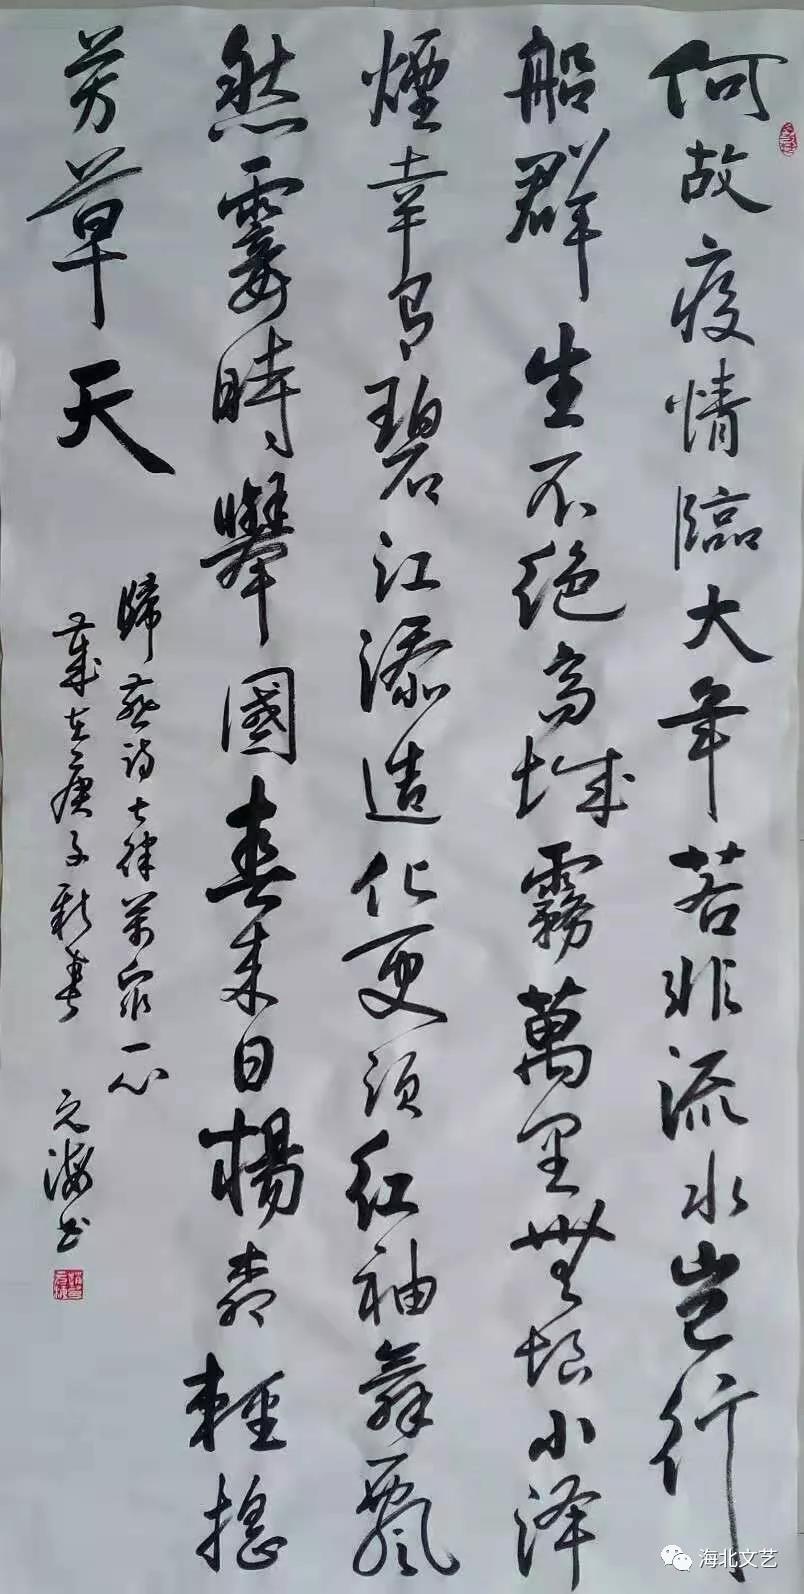 何故疫情臨大年若非流水豈行
船群生不絕高城霧萬里無垠小澤
煙幸有碧江添造化更須紅袖舞飄
然霎時舉國春來日楊柳輕搖
芳草天
歸燕詩七律萬眾一心
歲在庚子新春 元海书
海北文艺